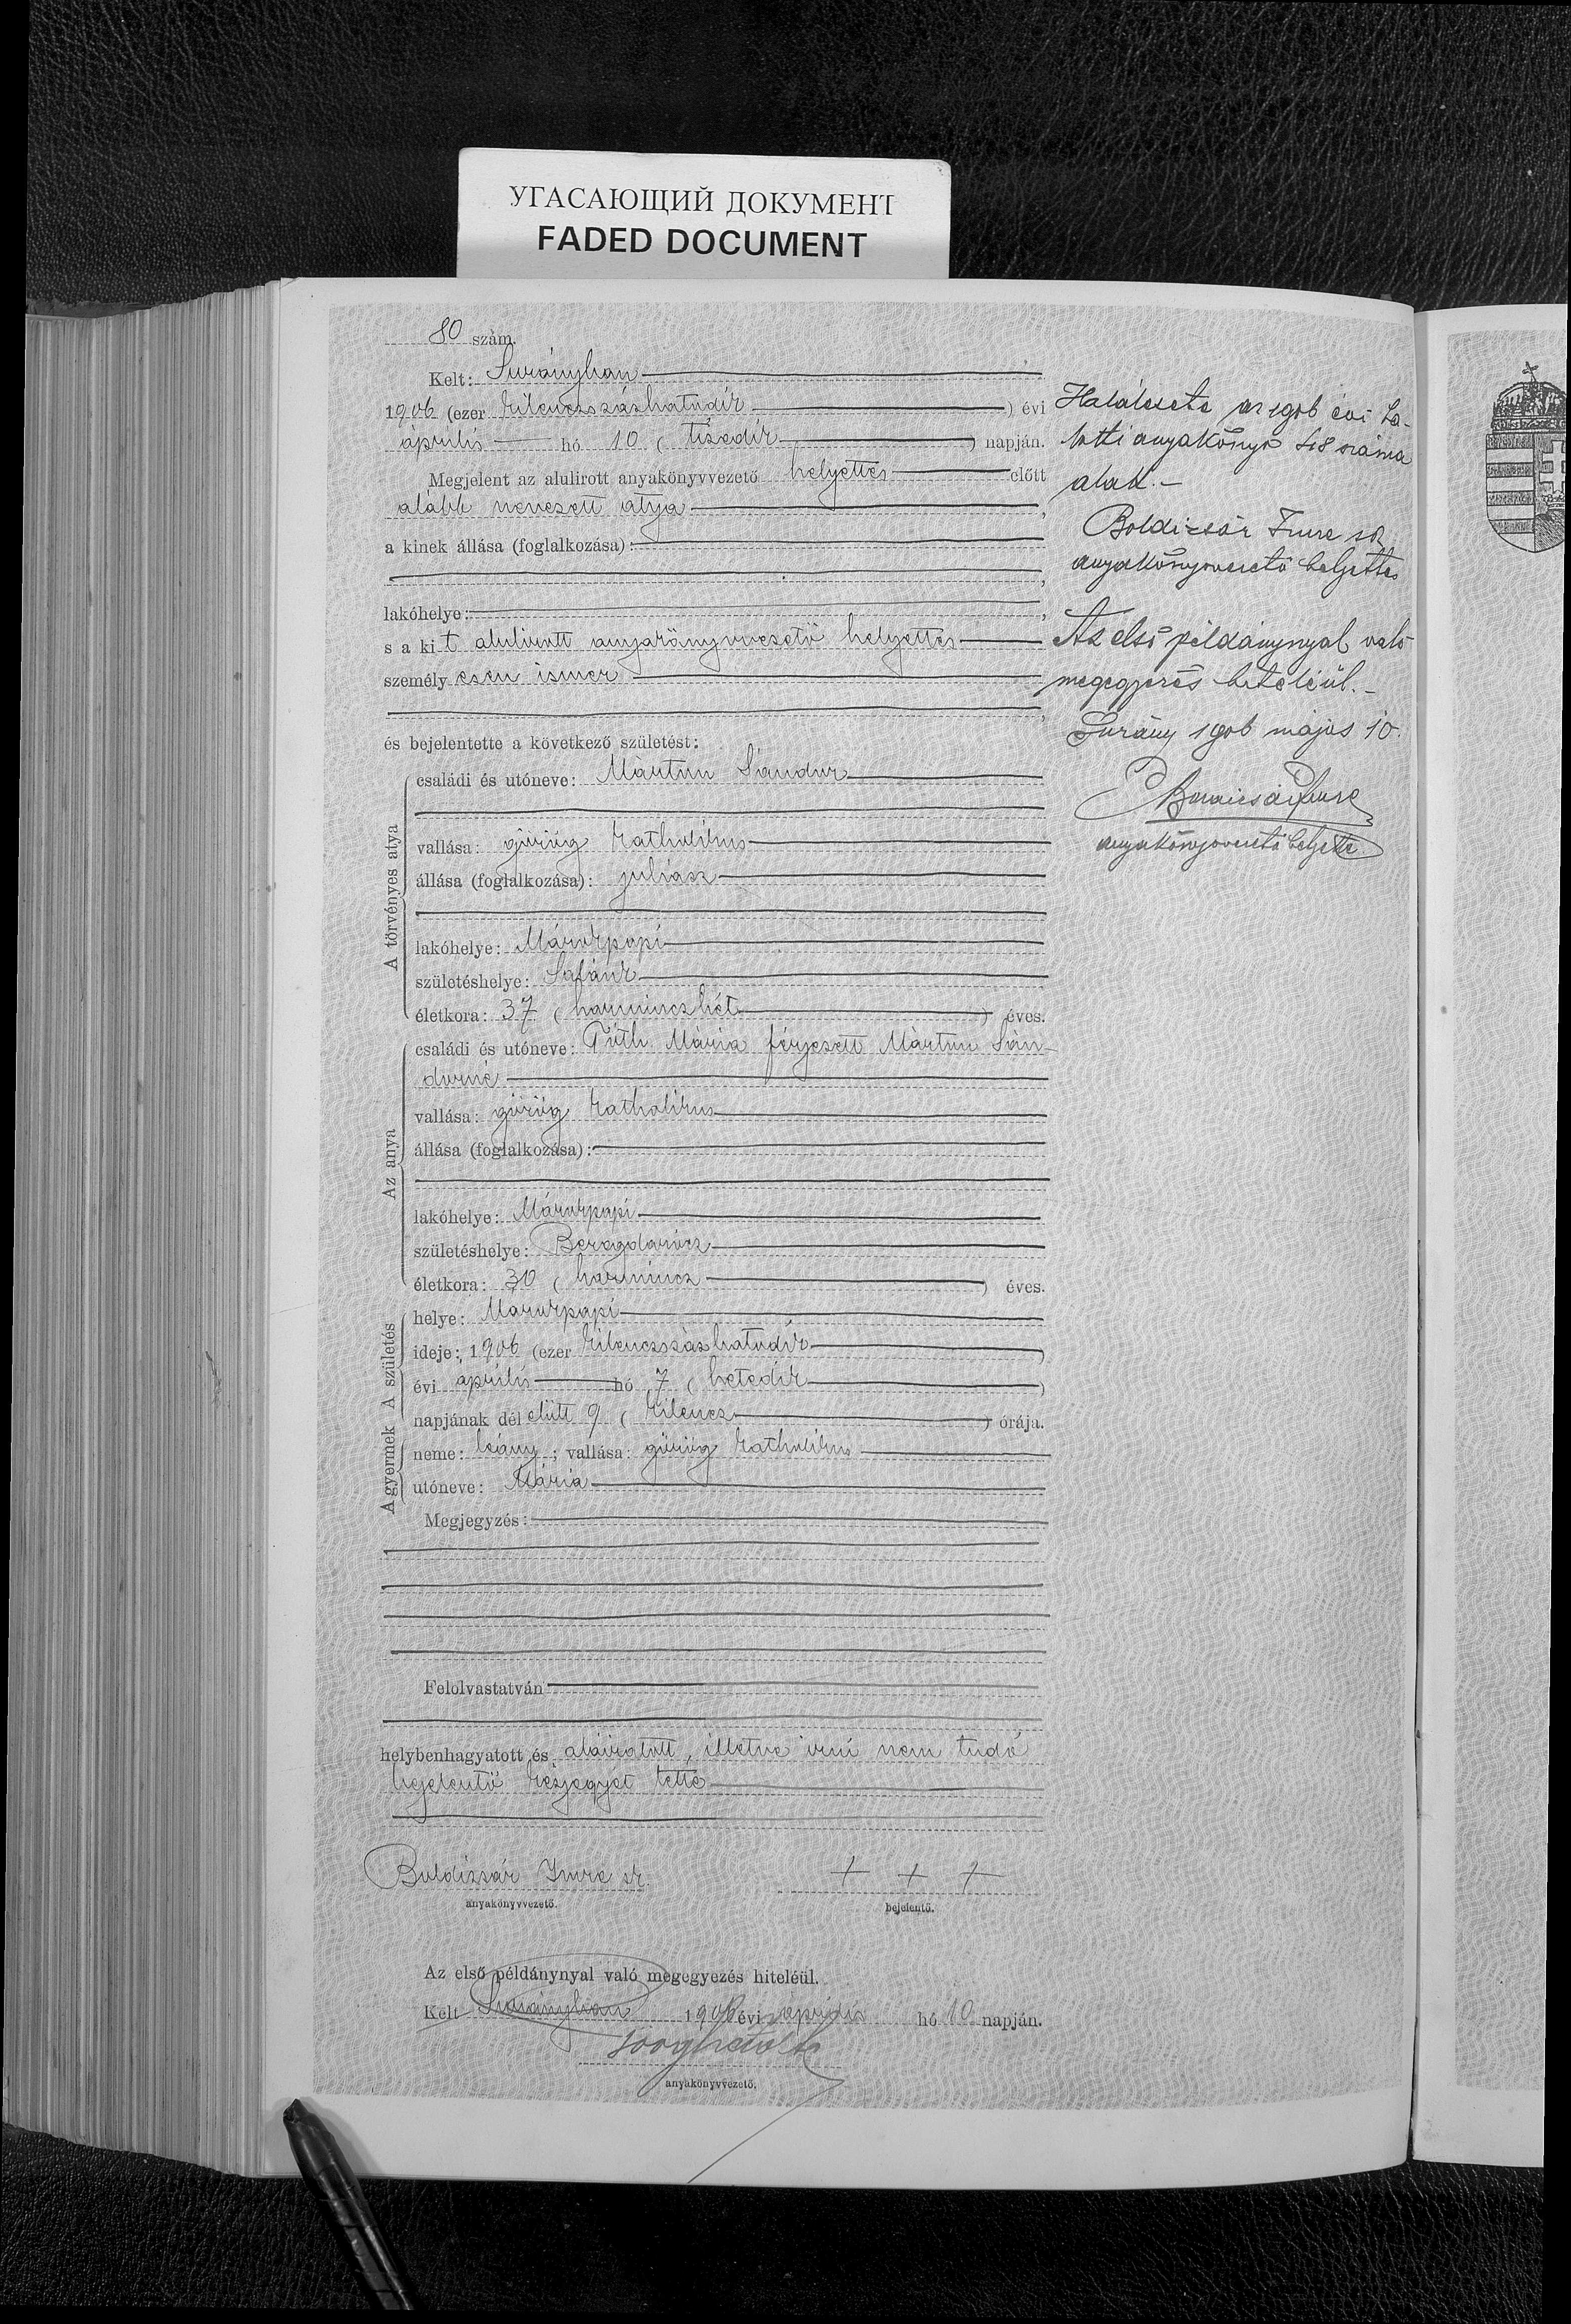 УГАСАЮЩИЙ ДОКУМЕНТ
FADED DOCUMENT
80 szám.
Kelt: Surányban
1906 (ezer kilenczszázhatodik) évi
április hó 10 (tizedik) napján.
Megjelent az alulirott anyakönyvvezető helyettes előtt
alább nevezett atya,
a kinek állása (foglalkozása):
lakóhelye:
s a kit alulirott anyakönyvvezető helyettes
személyesen ismer
és bejelentette a következő születést:
A törvényes atya
családi és utóneve: Márton Sándor
vallása: görög katholikus
állása (foglalkozása): juhász
lakóhelye: Márokpapi
születéshelye:
életkora: 37 (harminczhét) éves.
Az anya
családi és utóneve: Tóth Mária férjezett Márton Sán-
dorné
vallása: görög katholikus
állása (foglalkozása):
lakóhelye: Márokpapi
születéshelye: Beregdarócz
életkora: 30 (harmincz) éves.
A születés
helye: Márokpapi
ideje: 1906 (ezer kilenczszázhatodik)
évi április hó 7 (hetedik)
napjának dél előtt 9 (kilencz) órája.
A gyermek
neme: leány; vallása: görög katholikus
utóneve: Mária
Megjegyzés:
Felolvastatván
helybenhagyatott és aláiratott, illetve irni nem tudó
bejelentő kézjegyét tette
Boldizsár Imre sk. + + +
anyakönyvvezető. bejelentő.
Az első példánynyal való megegyezés hiteléül.
Kelt Surányban 1906 évi április hó 10 napján.
anyakönyvvezető.
Halálesete az 1906 évi ha-
lotti anyakönyv 48 száma
alatt.-
Boldizsár Imre sk
anyakönyvvezető helyettes
Az első példánynyal való
megegyezés hiteléül.-
Surány 1906 május 10.
Boldizsár Imre
anyakönyvvezető helyettes